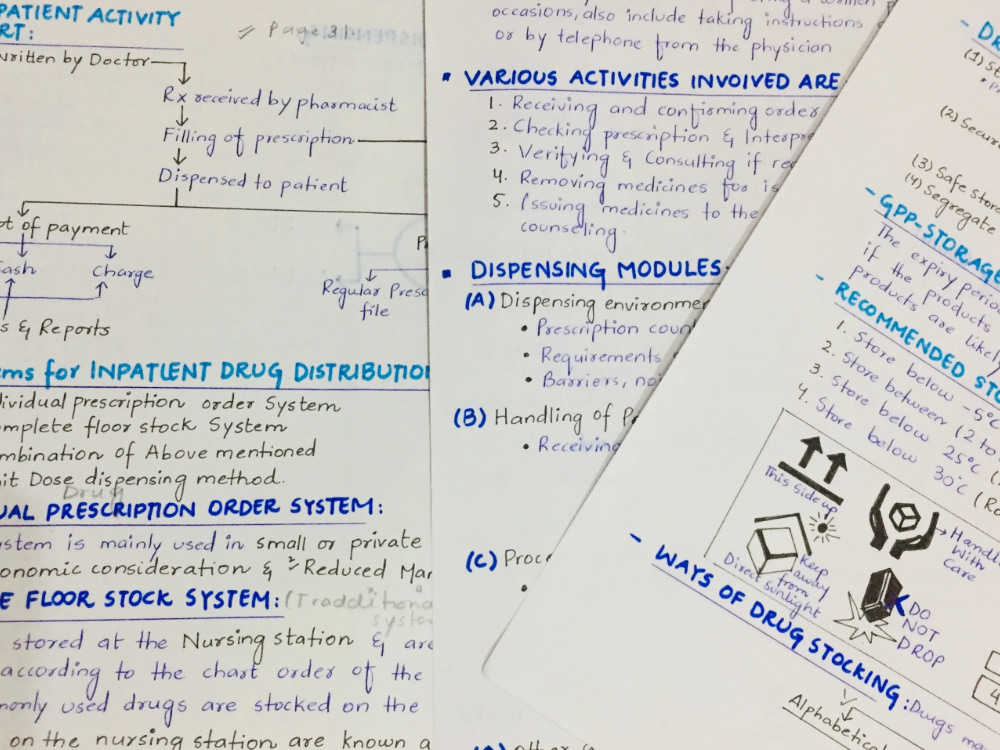 PATIENT ACTIVITY
RT:
Page 31
written by Doctor
Rx received by pharmacist
Filling of prescription
Dispensed to patient
of payment
ash
Charge
Regular Presc
file
s & Reports
ems for INPATIENT DRUG DISTRIBUTION
dividual prescription order System
omplete floor stock System
mbination of Above mentioned
it Dose dispensing method.
Drug
UAL PRESCRIPTION ORDER SYSTEM:
ystem is mainly used in small or private
onomic consideration & Reduced Mar
E FLOOR STOCK SYSTEM: (Tradditiona
system
stored at the Nursing station & are
according to the chart order of the
monly used drugs are stocked on the
on the nursing station are known a
occasions, also include taking instructions
or by telephone from the physician
▪ VARIOUS ACTIVITIES INVOIVED ARE
1. Receiving and confirming order
2. Checking prescription & Interpre
3. Verifying & Consulting if re
4. Removing medicines for is
5. Issuing medicines to the
counseling.
▪ DISPENSING MODULES
(A) Dispensing environmen
• Prescription coun
• Requirements
• Barriers, noi
(B) Handling of
• Receiving
(C) Proc
- DR
(1) St
(2) Secur
(3) Safe stor
(4) Segregate
- GPP-STORAGE
The expiry period
if the products
products are likely
- RECOMMENDED STO
1. Store below -5°C
2. Store between (2 to
3. Store below 25°C (
4. Store below 30°C (Ro
This side up
Handle
With
Care
Keep
away
from
Direct sunlight
DO
NOT
DROP
- WAYS OF DRUG STOCKING: Drugs ma
Alphabetical